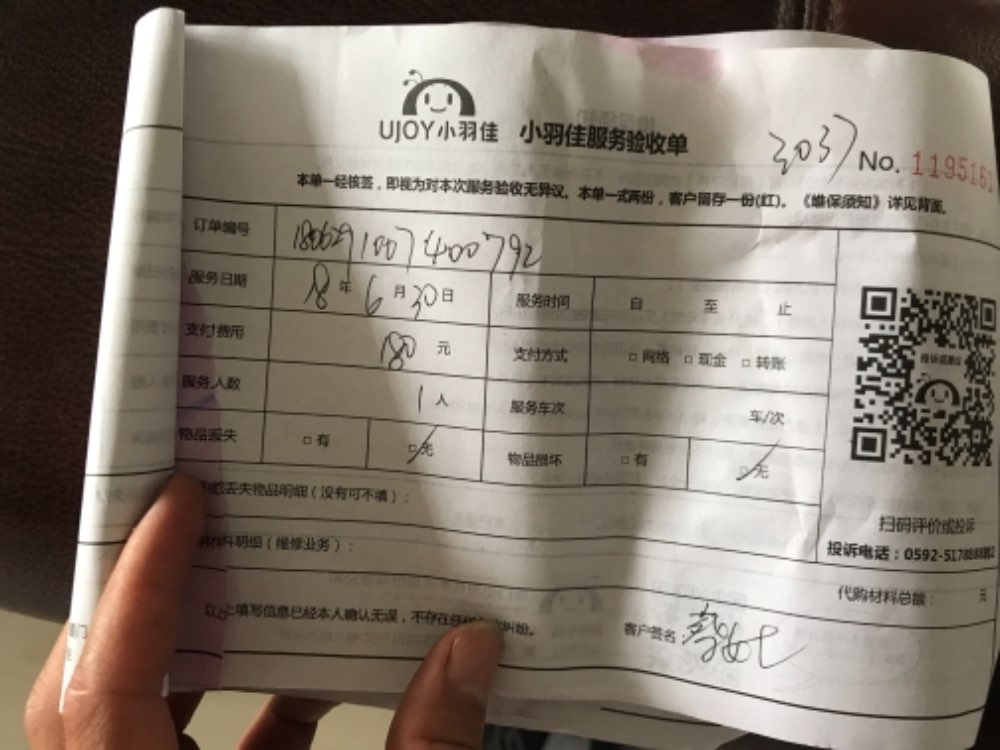 UJOY小羽佳 小羽佳服务验收单
3037 No. 1195161
本单一经核签，即视为对本次服务验收无异议。本单一式两份，客户留存一份(红)。《维保须知》详见背面。
订单编号 1806291007400792
服务日期 18年6月30日 服务时间 自 至 止
支付费用 180元 支付方式 □网络 □现金 □转账
服务人数 1人 服务车次 车/次
物品丢失 □有 □无 物品损坏 □有 □无
投诉或建议
扫码评价或投诉
投诉电话：0592-5178888882
丢失物品明细（没有可不填）：
料明细（维修业务）：
代购材料总额： 元
以上填写信息已经本人确认无误，不存在任何 纠纷。 客户签名：